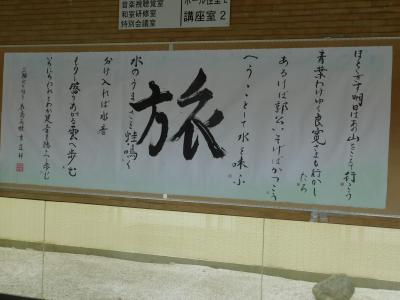 音楽視聴覚室
和室研修室
特別会議室
講座室2
ほととぎす明日はあの山こえて行かう
青葉わけゆく良寛さまも行かし
たろ
あるけば郭公いそげばかつこう
へうへうとして水を味ふ
旅
水のうまさを蛙鳴く
分け入れば水音
もりもり盛りあがる雲へ歩む